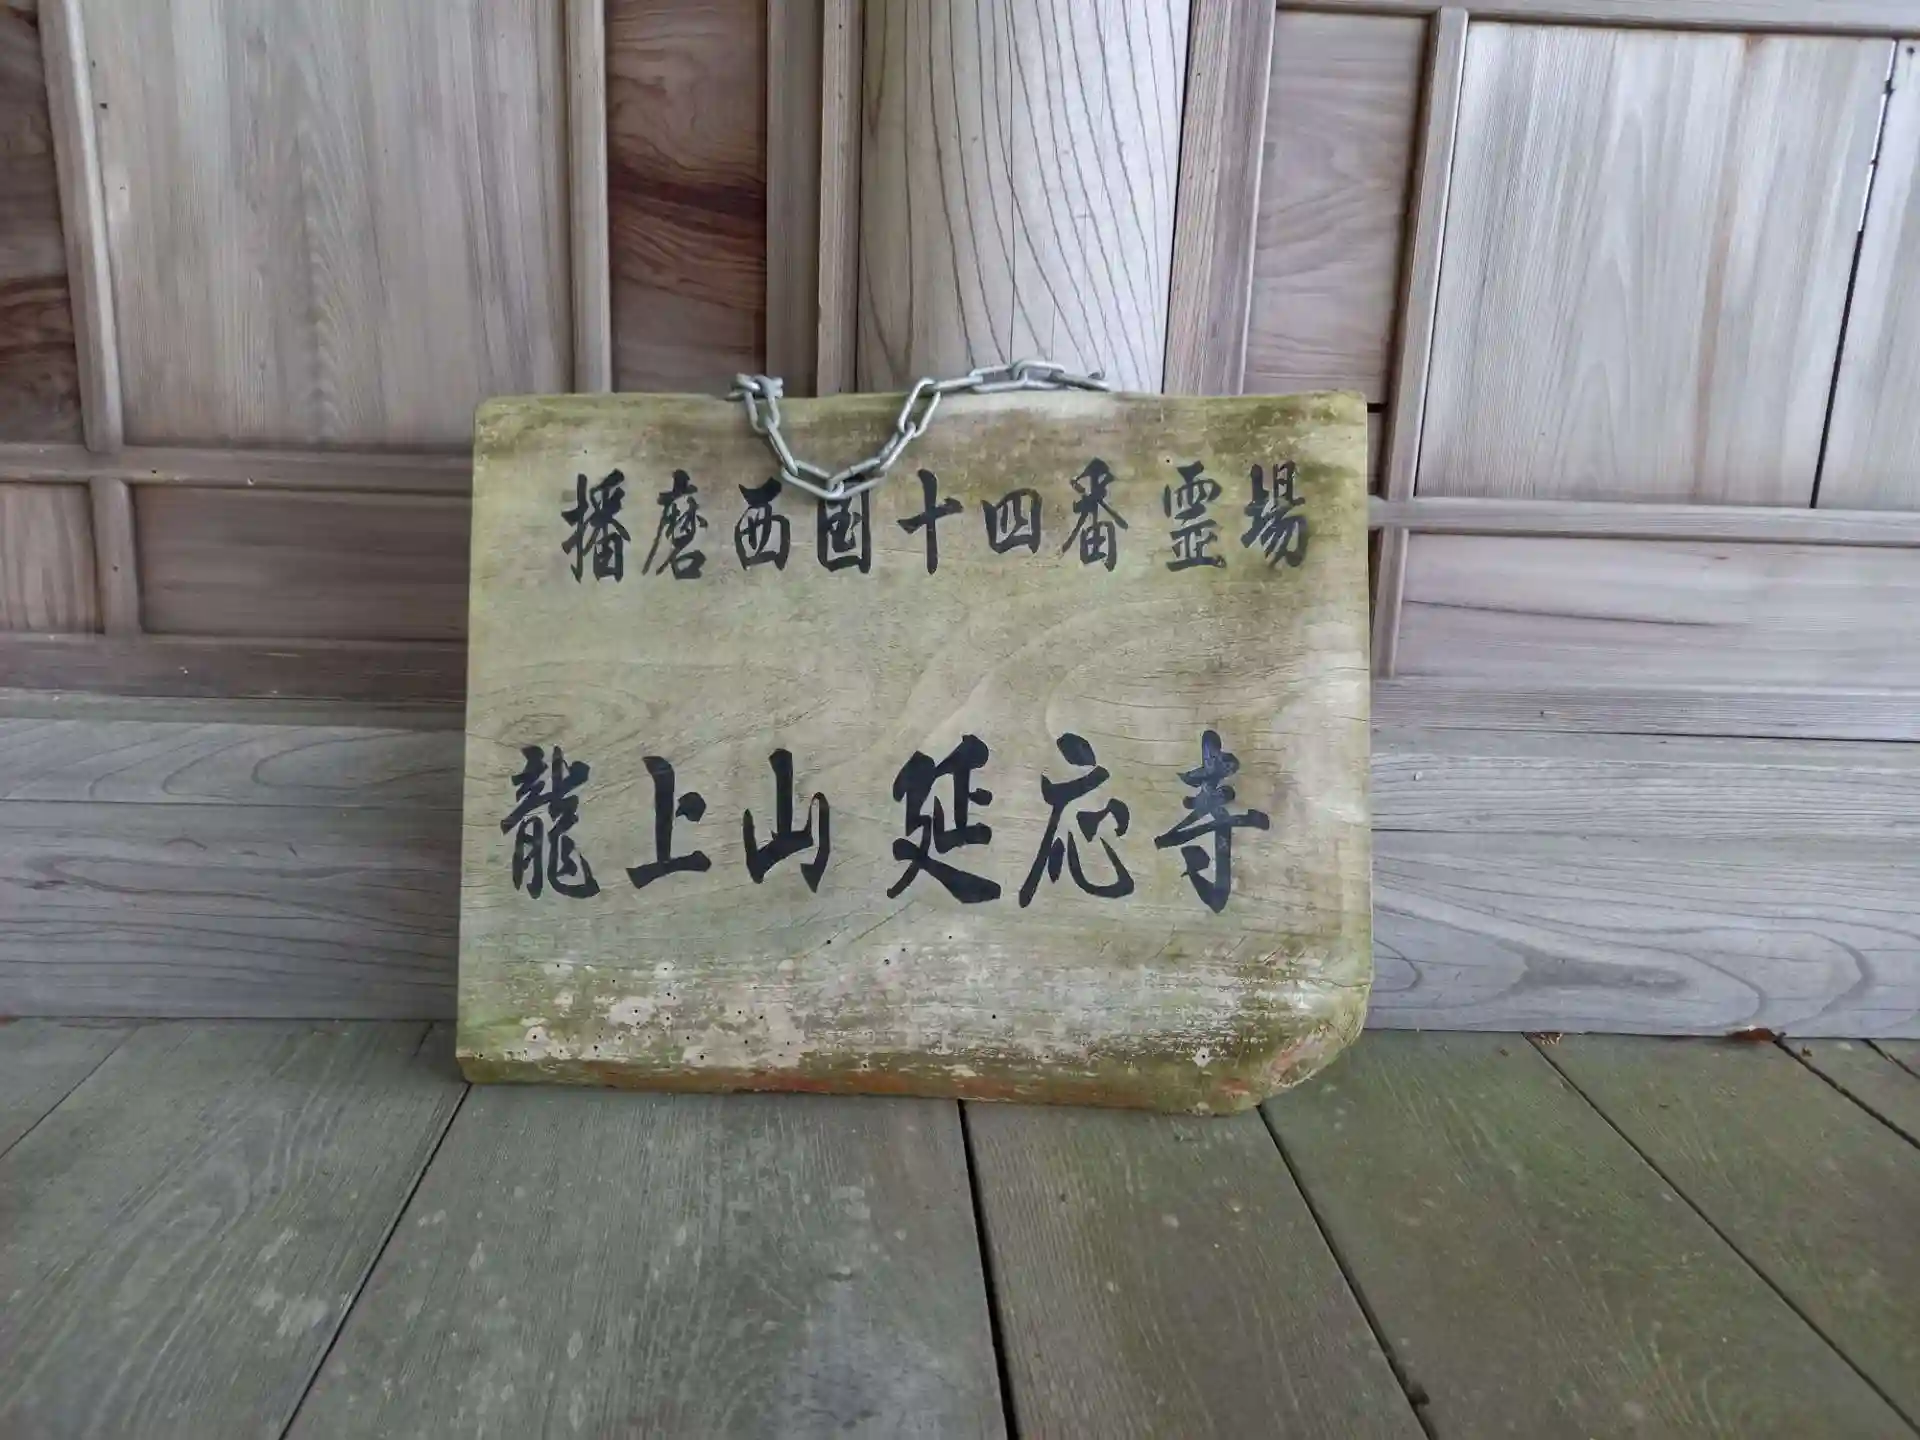 播磨西国十四番霊場
龍上山 延応寺